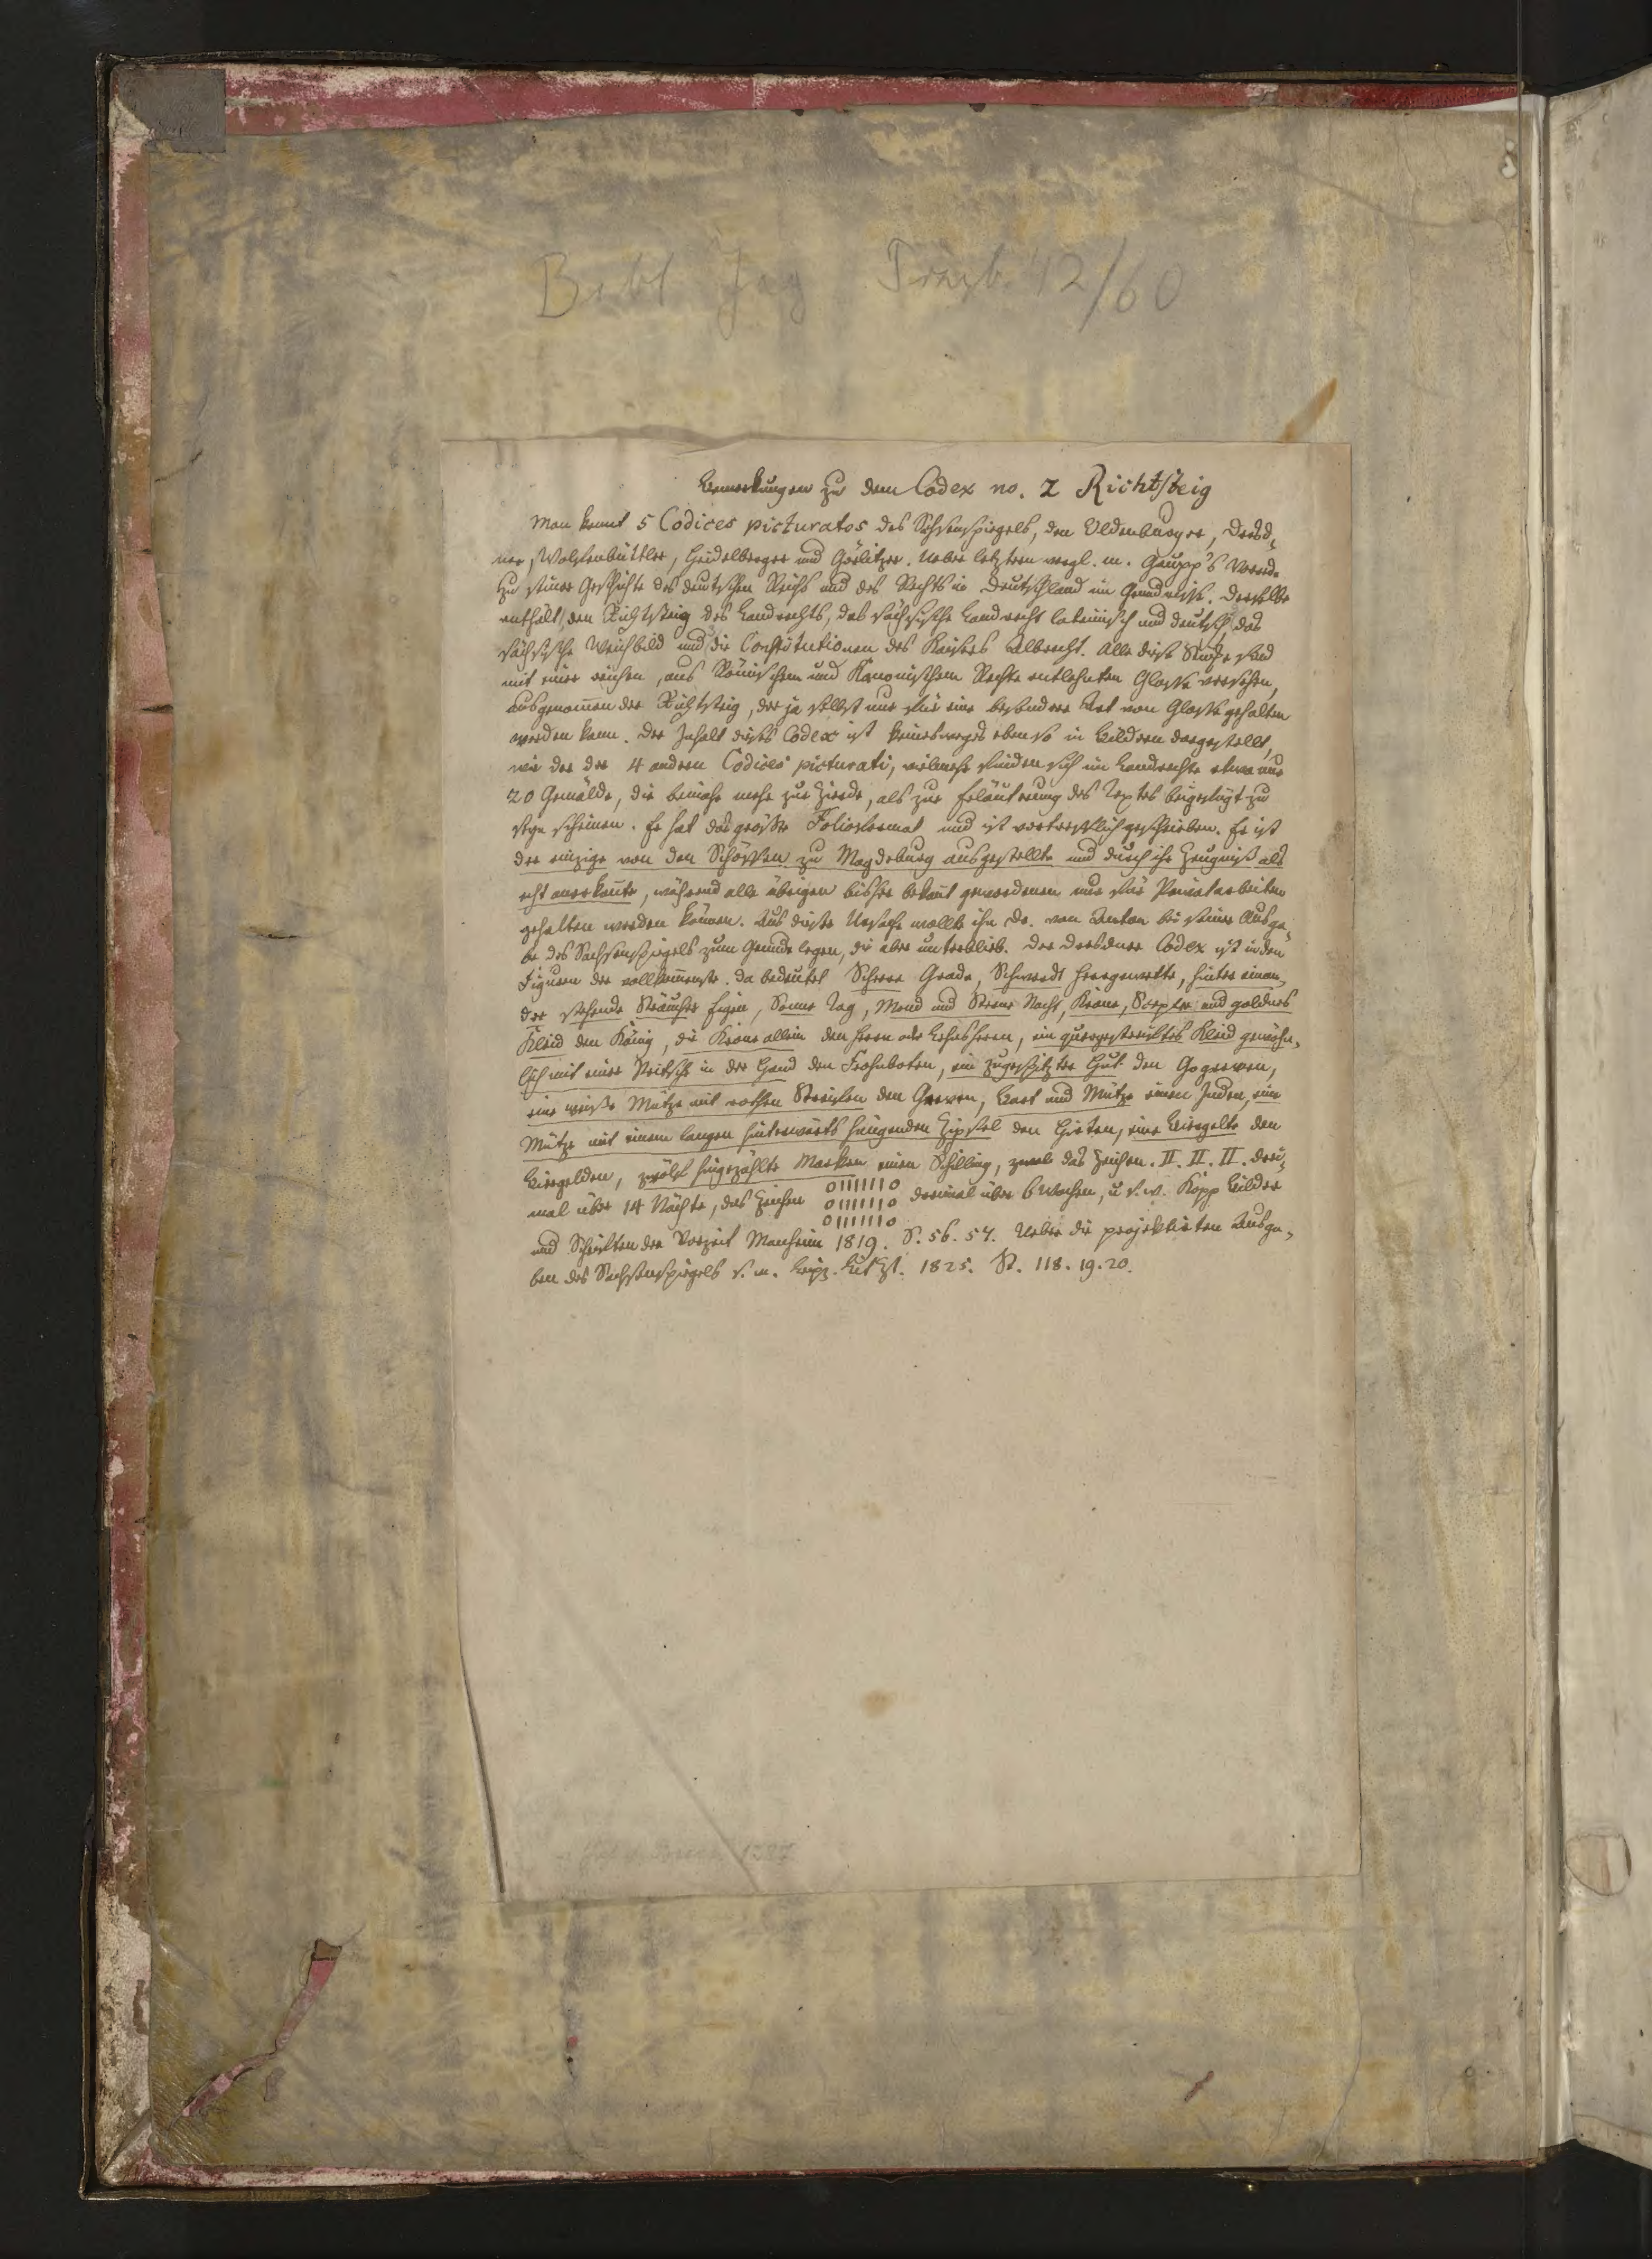 Bibl Jag Przyb. 42/60
Bemerkungen zu dem Codex no. 2 Richtsteig
Man kennt 5 Codices picturatos des Sachsenspiegels, den Oldenburger, Dresd-
ner, Wolfenbüttler, Heidelberger und Görlitzer. Ueber letztern vergl. m. Gaupp's Vorrede
zu seiner Geschichte des deutschen Reichs und des Rechts in Deutschland im Grundrisse. Derselbe
enthält, den Richtsteig des Landrechts, das sächsische Landrecht lateinisch und deutsch, das
sächsische Weichbild und die Constitutionen des Kaisers Albrecht. Alle diese Stücke sind
mit einer reichen, aus Römischem und Kanonischem Rechte entlehnten Glosse versehen,
ausgenommen der Richtsteig, der ja selbst nur für eine besondere Art von Glosse gehalten
werden kann. Der Inhalt dieses Codex ist keineswegs ebenso in Bildern dargestellt,
wie der der 4 andern Codices picturati, vielmehr finden sich im Landrechte etwa nur
20 Gemälde, die beinahe mehr zur Zierde, als zur Erläuterung des Textes beigefügt zu
seyn scheinen. Er hat das größte Folioformat und ist vortrefflich geschrieben. Er ist
der einzige von den Schöffen zu Magdeburg ausgestellte und durch ihr Zeugniß als
echt anerkannte, während alle übrigen bisher bekannt gewordenen nur für Privatarbeiten
gehalten werden können. Aus dieser Ursache wollte ihn Dr. von Anton bei seiner Ausga-
be des Sachsenspiegels zum Grunde legen, die aber unterblieb. Der Dresdner Codex ist in den
Figuren der vollkommenste. Da bedeutet Scheere Grade, Schwerdt Heergewette, hinter einan-
der stehende Sträucher Eigen, Sonne Tag, Mond und Sterne Nacht, Krone, Scepter und goldnes
Kleid den König, die Krone allein den Herrn oder Lehnsherrn, ein quergestreiftes Kleid gewöhn-
lich mit einer Peitsche in der Hand den Frohnboten, ein zugespitzter Hut den Gogreven,
eine weiße Mütze mit rothen Streifen den Greven, Bart und Mütze einen Juden, eine
Mütze mit einem langen hinterwärts hängenden Zipfel den Hirten, eine Biergelte den
Biergelden, zwölf hingezählte Marken einen Schilling, zwar das Zeichen. II. II. II. drei-
mal über 14 Nächte, das Zeichen 0IIIIIII0 dreimal über 6 Wochen, u. s. w. Kopp Bilder
0IIIIIII0
0IIIIIII0
und Schriften der Vorzeit Manheim 1819. S. 56. 57. Ueber die projektirten Ausga-
ben des Sachsenspiegels s. m. Leipz. Lit Zt. 1825. St. 118. 19. 20.